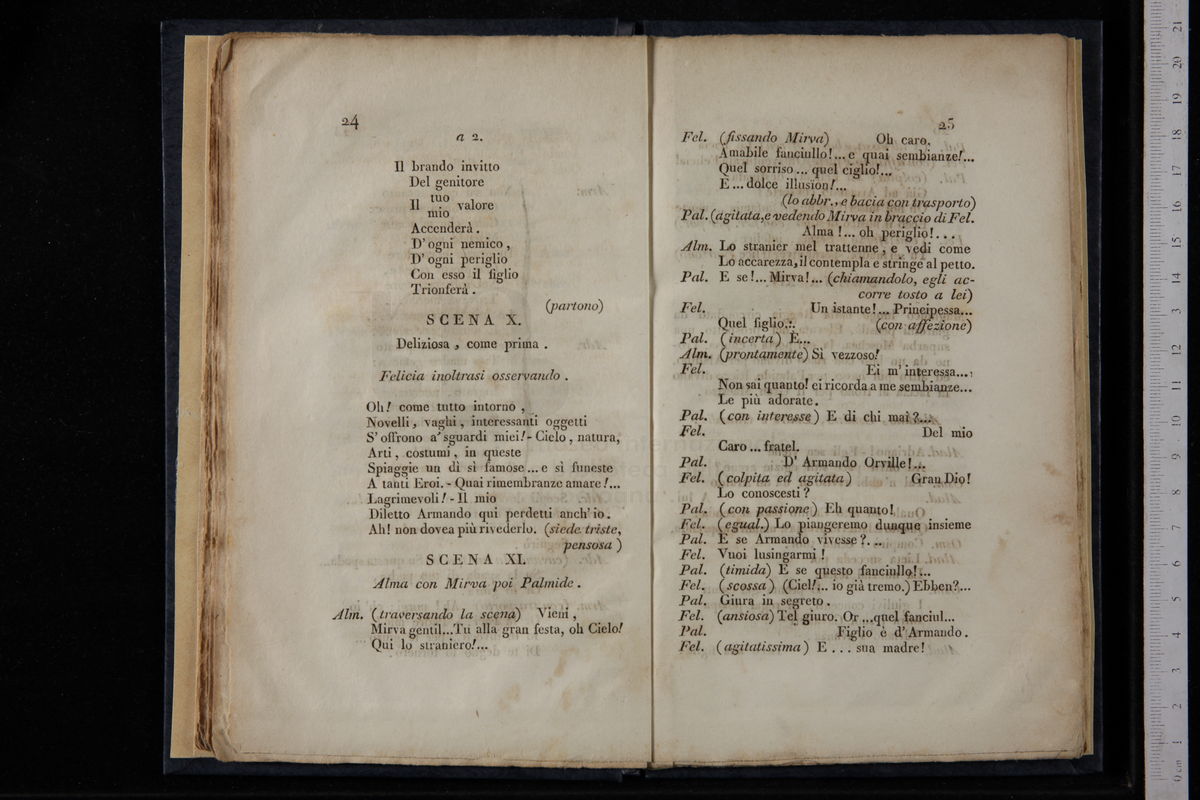 24
a 2.
Il brando invitto
Del genitore
Il tuo mio valore
Accenderà.
D' ogni nemico,
D' ogni periglio
Con esso il figlio
Trionferà.
(partono)
SCENA X.
Deliziosa, come prima.
Felicia inoltrasi osservando.
Oh! come tutto intorno,
Novelli, vaghi, interessanti oggetti
S' offrono a' sguardi miei! - Cielo, natura,
Arti, costumi, in queste
Spiaggie un dì sì famose ... e sì funeste
A tanti Eroi. - Quai rimembranze amare!...
Lagrimevoli! - Il mio
Diletto Armando qui perdetti anch' io.
Ah! non dovea più rivederlo. (siede triste,
pensosa)
SCENA XI.
Alma con Mirva poi Palmide.
Alm. (traversando la scena) Vieni,
Mirva gentil...Tu alla gran festa, oh Cielo!
Qui lo straniero!...
25
Fel. (fissando Mirva) Oh caro.
Amabile fanciullo!... e quai sembianze!...
Quel sorriso ... quel ciglio!...
E ... dolce illusion!...
(lo abbr., e bacia con trasporto)
Pal. (agitata, e vedendo Mirva in braccio di Fel.
Alma!... oh periglio!...
Alm. Lo stranier mel trattenne, e vedi come
Lo accarezza, il contempla e stringe al petto.
Pal. E se!... Mirva!... (chiamandolo, egli ac-
corre tosto a lei)
Fel. Un istante!... Principessa...
Quel figlio... (con affezione)
Pal. (incerta) È...
Alm. (prontamente) Sì vezzoso!
Fel. Ei m' interessa...,
Non sai quanto! ei ricorda a me sembianze...
Le più adorate.
Pal. (con interesse) E di chi mai?...
Fel. Del mio
Caro ... fratel.
Pal. D' Armando Orville!...
Fel. (colpita ed agitata) Gran Dio!
Lo conoscesti?
Pal. (con passione) Eh quanto!
Fel. (egual.) Lo piangeremo dunque insieme
Pal. E se Armando vivesse?...
Fel. Vuoi lusingarmi!
Pal. (timida) E se questo fanciullo!...
Fel. (scossa) (Ciel!... io già tremo.) Ebben?...
Pal. Giura in segreto.
Fel. (ansiosa) Tel giuro. Or ...quel fanciul...
Pal. Figlio è d' Armando.
Fel. (agitatissima) E ... sua madre!